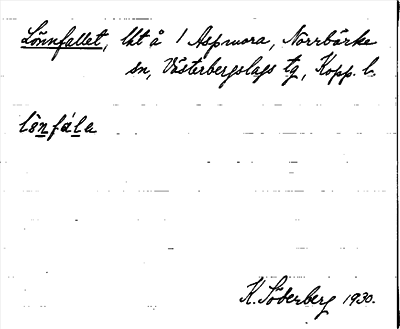 Lönnfallet, lht å 1 Aspmora, Norrbärke
sn, Västerbergslags tg, Kopp. l.
lönfála
K. Söderberg 1930.